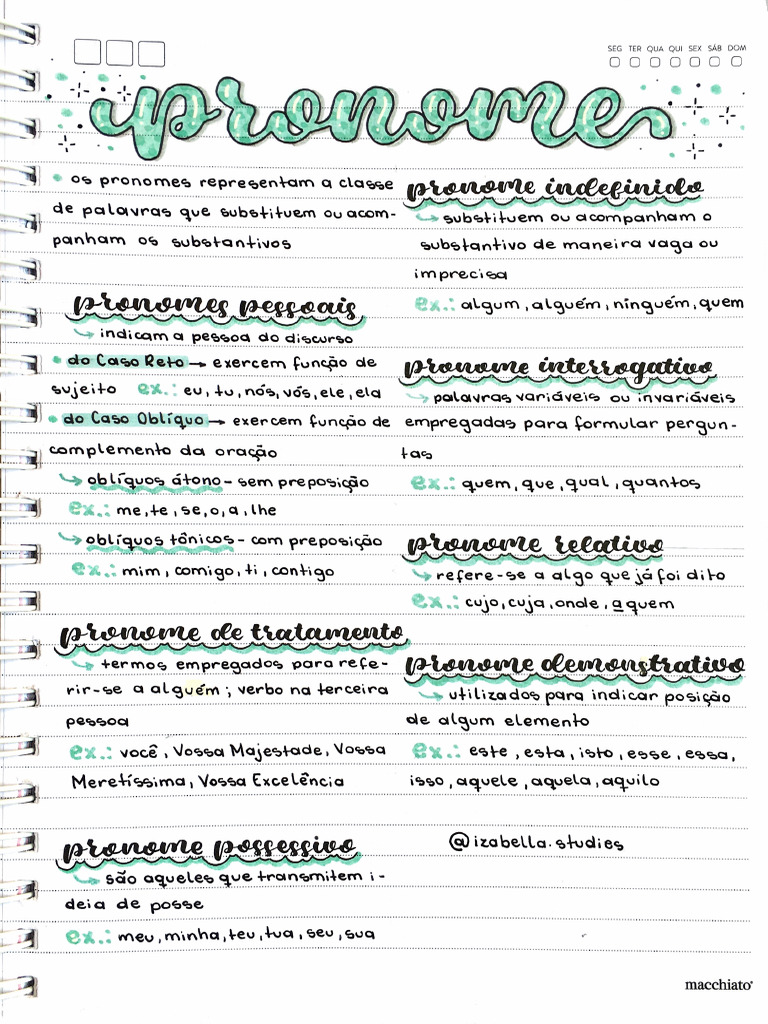 SEG TER QUA QUI SEX SÁB DOM
pronome
• os pronomes representam a classe
de palavras que substituem ou acom-
panham os substantivos
pronomes pessoais
↪ indicam a pessoa do discurso
• do Caso Reto → exercem função de
sujeito ex.: eu, tu, nós, vós, ele, ela
• do Caso Oblíquo → exercem função de
complemento da oração
↪ oblíquos átono - sem preposição
ex.: me, te, se, o, a, lhe
↪ oblíquos tônicos - com preposição
ex.: mim, comigo, ti, contigo
pronome de tratamento
↪ termos empregados para refe-
rir-se a alguém; verbo na terceira
pessoa
ex.: você, Vossa Majestade, Vossa
Meretíssima, Vossa Excelência
pronome possessivo
↪ são aqueles que transmitem i-
deia de posse
ex.: meu, minha, teu, tua, seu, sua
pronome indefinido
↪ substituem ou acompanham o
substantivo de maneira vaga ou
imprecisa
ex.: algum, alguém, ninguém, quem
pronome interrogativo
↪ palavras variáveis ou invariáveis
empregadas para formular pergun-
tas
ex.: quem, que, qual, quantos
pronome relativo
↪ refere-se a algo que já foi dito
ex.: cujo, cuja, onde, a quem
pronome demonstrativo
↪ utilizados para indicar posição
de algum elemento
ex.: este, esta, isto, esse, essa,
isso, aquele, aquela, aquilo
@izabella.studies
macchiato